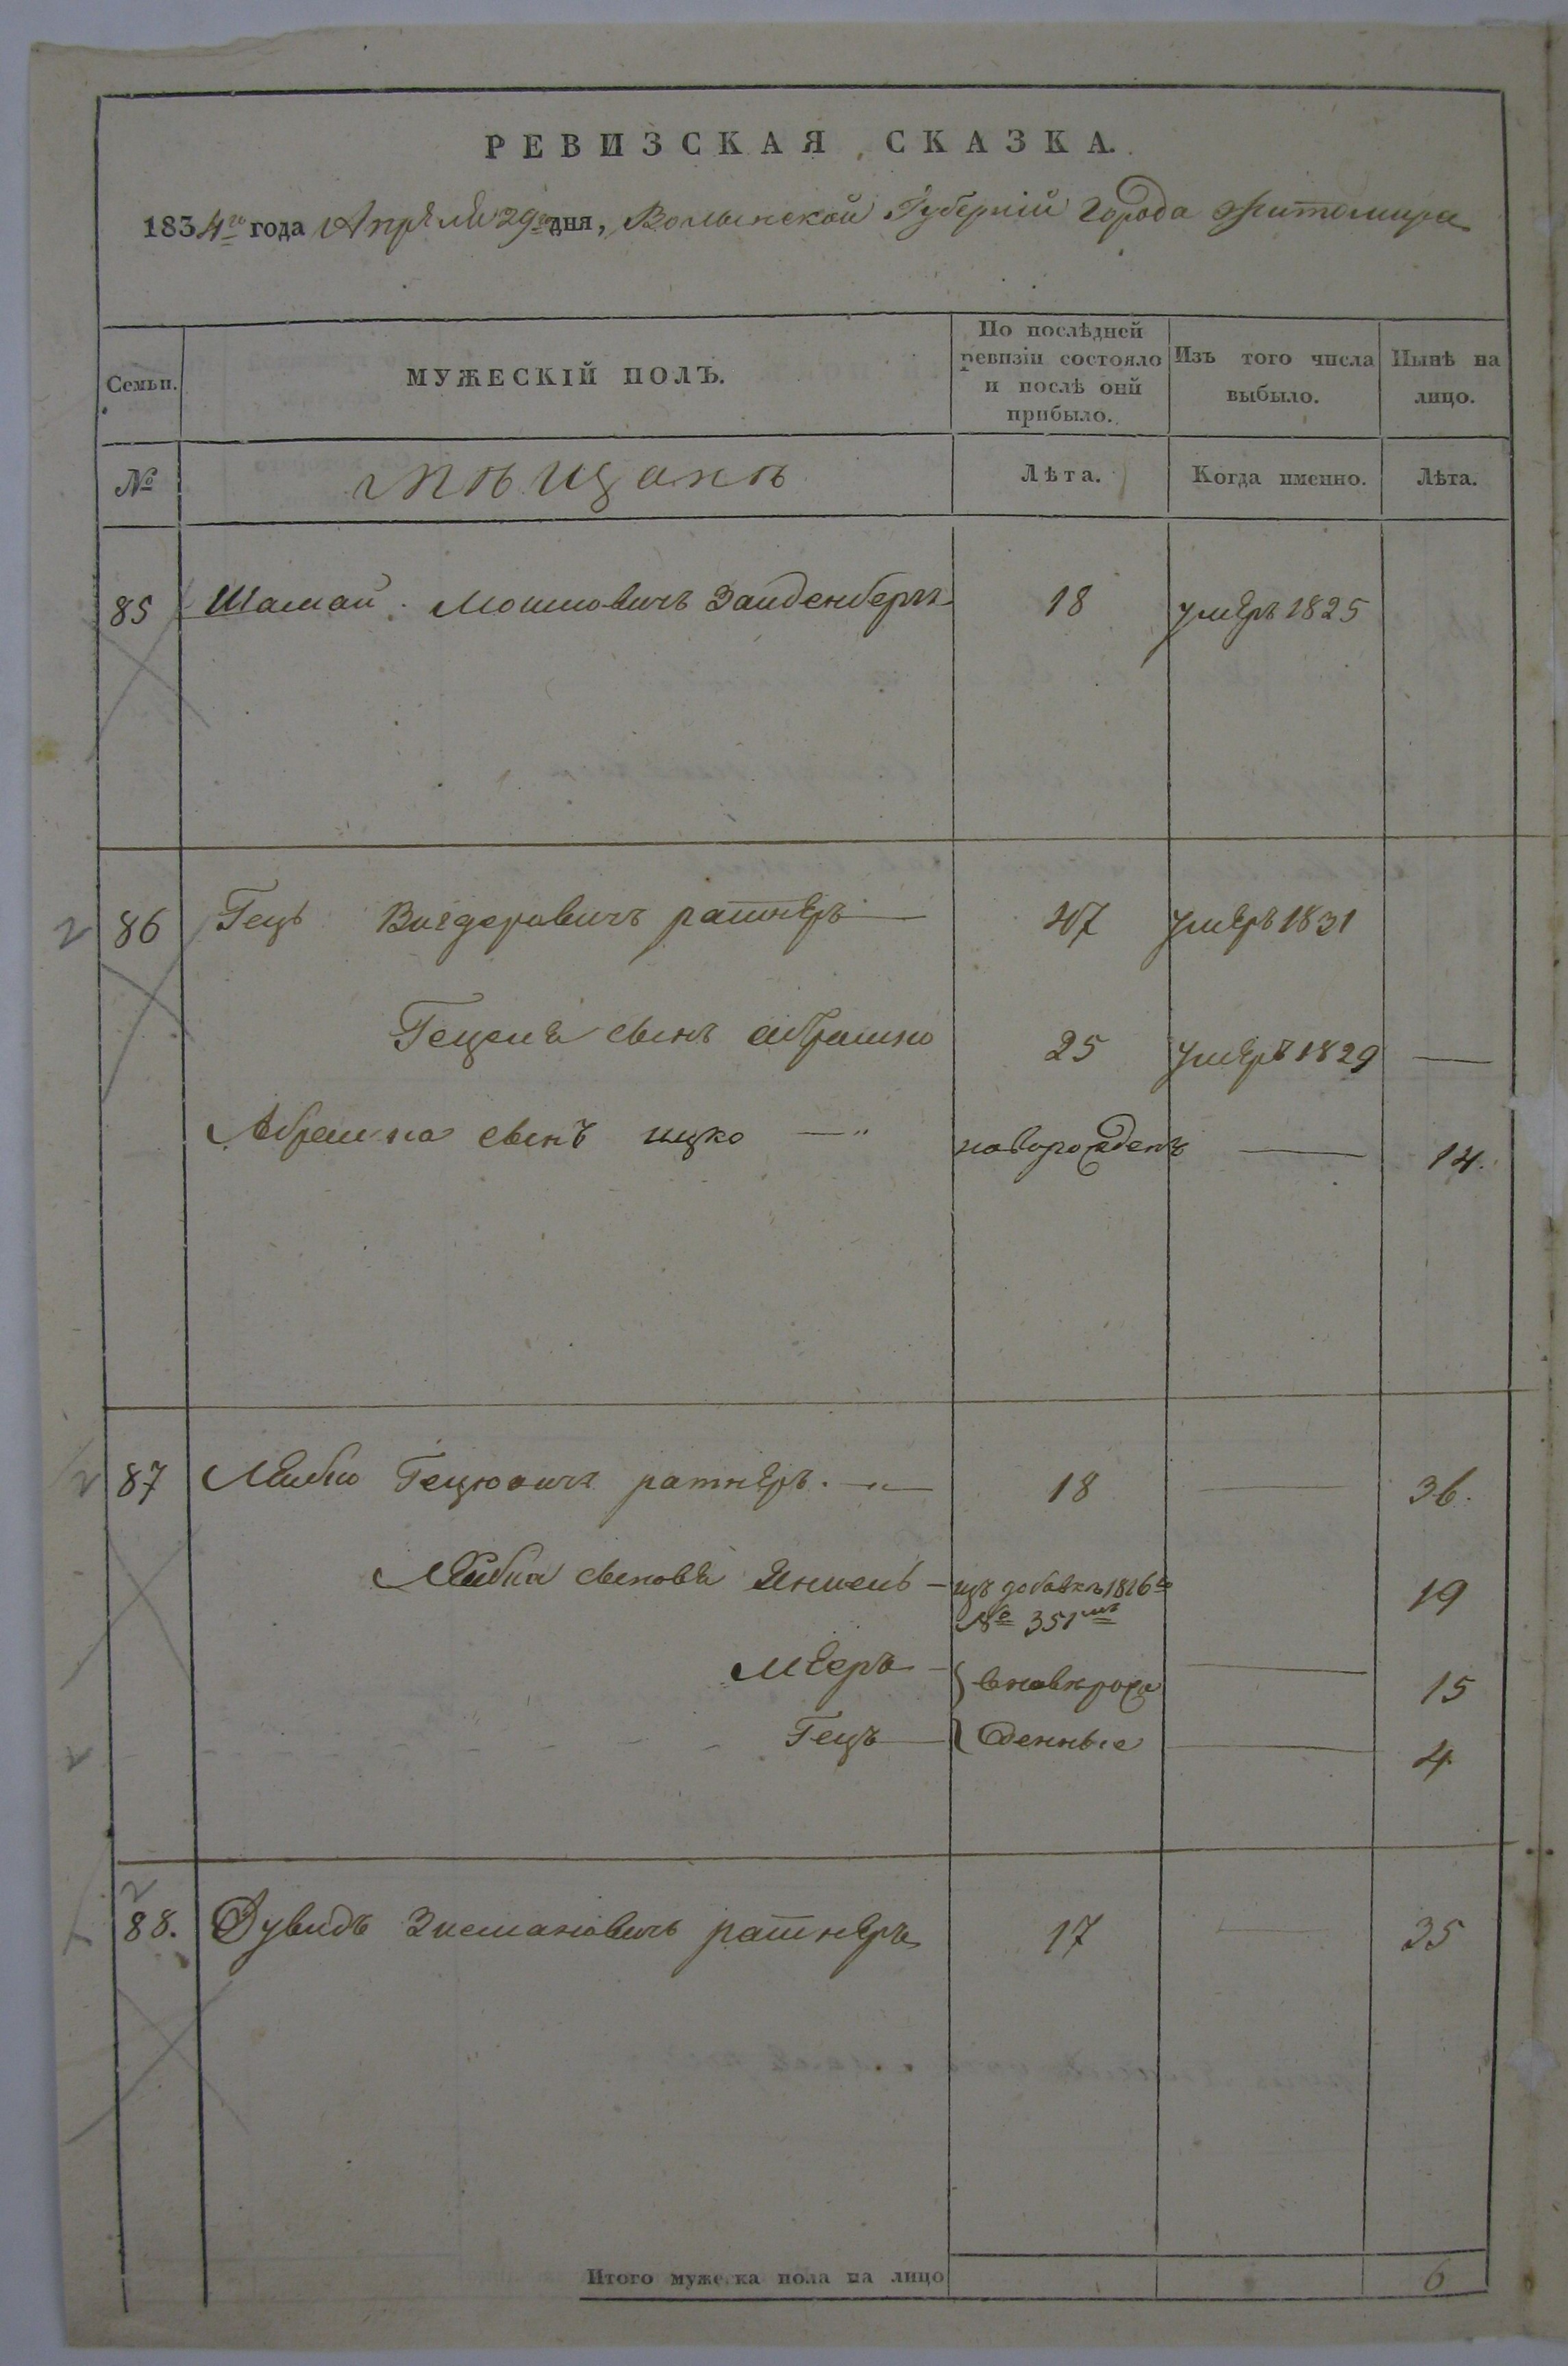 РЕВИЗСКАЯ СКАЗКА.
1834го года Апреля 29го дня, Волынской Губернии Города Житомира
Семьи.
МУЖЕСКІЙ ПОЛЪ.
По послѣдней ревизіи состояло и послѣ оній прибыло.
Изъ того числа выбыло.
Нынѣ на лицо.
№
мѣщанѣ
Лѣта.
Когда именно.
Лѣта.
85 Шамай Мошковичъ Зайденберг 18 умеръ 1825
2 86 Гецъ Вигдеровичъ ратнеръ 47 умеръ 1831
Гецеля сынъ абрамко 25 умеръ 1829 —
Абрамка сынъ ицко — новорожденъ — 14.
2 87 Лейбко Гецковичъ ратнеръ. — 18 — 36.
Лейбка сыновя Янкель — изъ добавкъ 1816го 19
№ 351мъ
Мееръ — } вновьрож — 15
2 Гецъ — } денные — 4
2
88. Дувидъ Зисмановичъ ратнеръ 17 — 35
Итого мужеска пола на лицо 6